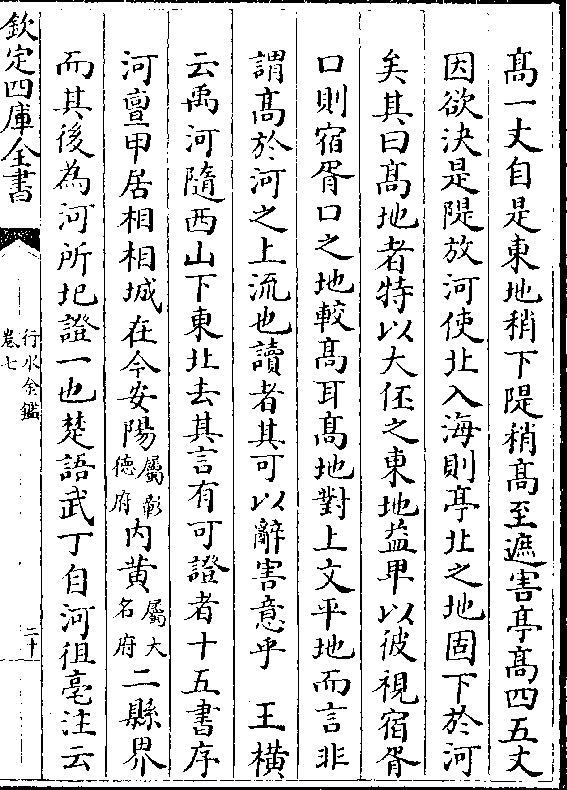 髙一丈自是東地稍下隄稍髙至遮害亭髙四五丈
因欲決是隄放河使北入海則亭北之地固下於河
矣其曰髙地者特以大伾之東地益卑以彼視宿胥
口則宿胥口之地較髙耳髙地對上文平地而言非
謂髙於河之上流也讀者其可以辭害意乎　王橫
云禹河隨西山下東北去其言有可證者十五書序
河亶甲居相相城在今安陽屬彰德府内黄屬大名府二縣界
而其後為河所圮證一也楚語武丁自河徂亳注云
欽定四庫全書
行水金鑑
卷七
二十